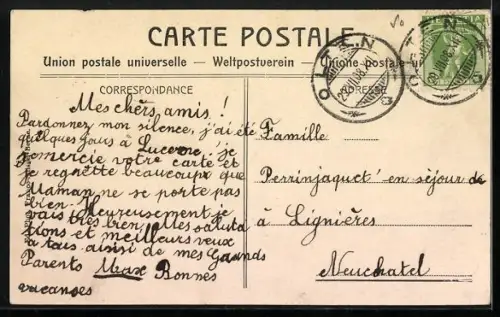 CARTE POSTALE.
Union postale universelle. — Weltpostverein. — Unione postale-u
CORRESPONDANCE
ADRESSE
OLTEN
OLTEN
Mes chers amis!
Pardonnez mon silence, j'ai été
quelques jours à Lucerne, je
remercie votre carte et
je regrette beaucoup que
Maman ne se porte pas
bien. Heureusement je
vais très bien. Mes saluta
tions et meilleurs veux
à tous aisisi de mes Grands
Parents Max Bonnes
vacances
Famille
Perrinjaquet en séjour de
à Lignières
Neuchatel